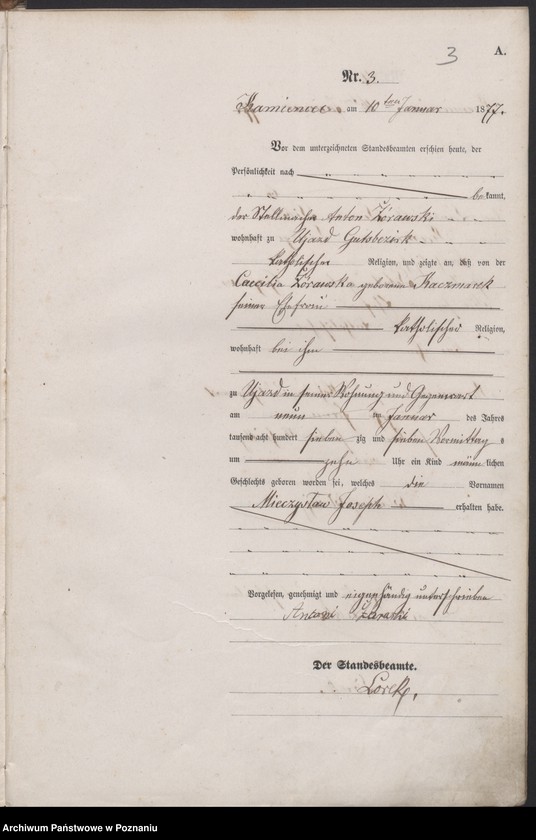 3
A.
Nr. 3.
Kamieniec am 10ten Januar 1877.
Vor dem unterzeichneten Standesbeamten erschien heute, der
Persönlichkeit nach
bekannt,
der Anton Żórawski
wohnhaft zu Ujazd Gutsbezirk
katholischer Religion, und zeigte an, daß von der
Caecilia Żórawska geborenen Kaczmarek
seiner Ehefrau
katholischer Religion,
wohnhaft bei ihm
zu Ujazd in seiner Wohnung und Gegenwart
am neun ten Januar des Jahres
tausend acht hundert sieben zig und sieben Vormittag s
um zehn Uhr ein Kind männ lichen
Geschlechts geboren worden sei, welches die Vornamen
Mieczysław Joseph erhalten habe.
Vorgelesen, genehmigt und eigenhändig unterschrieben
Antoni
Der Standesbeamte.
Lorek.
Archiwum Państwowe w Poznaniu